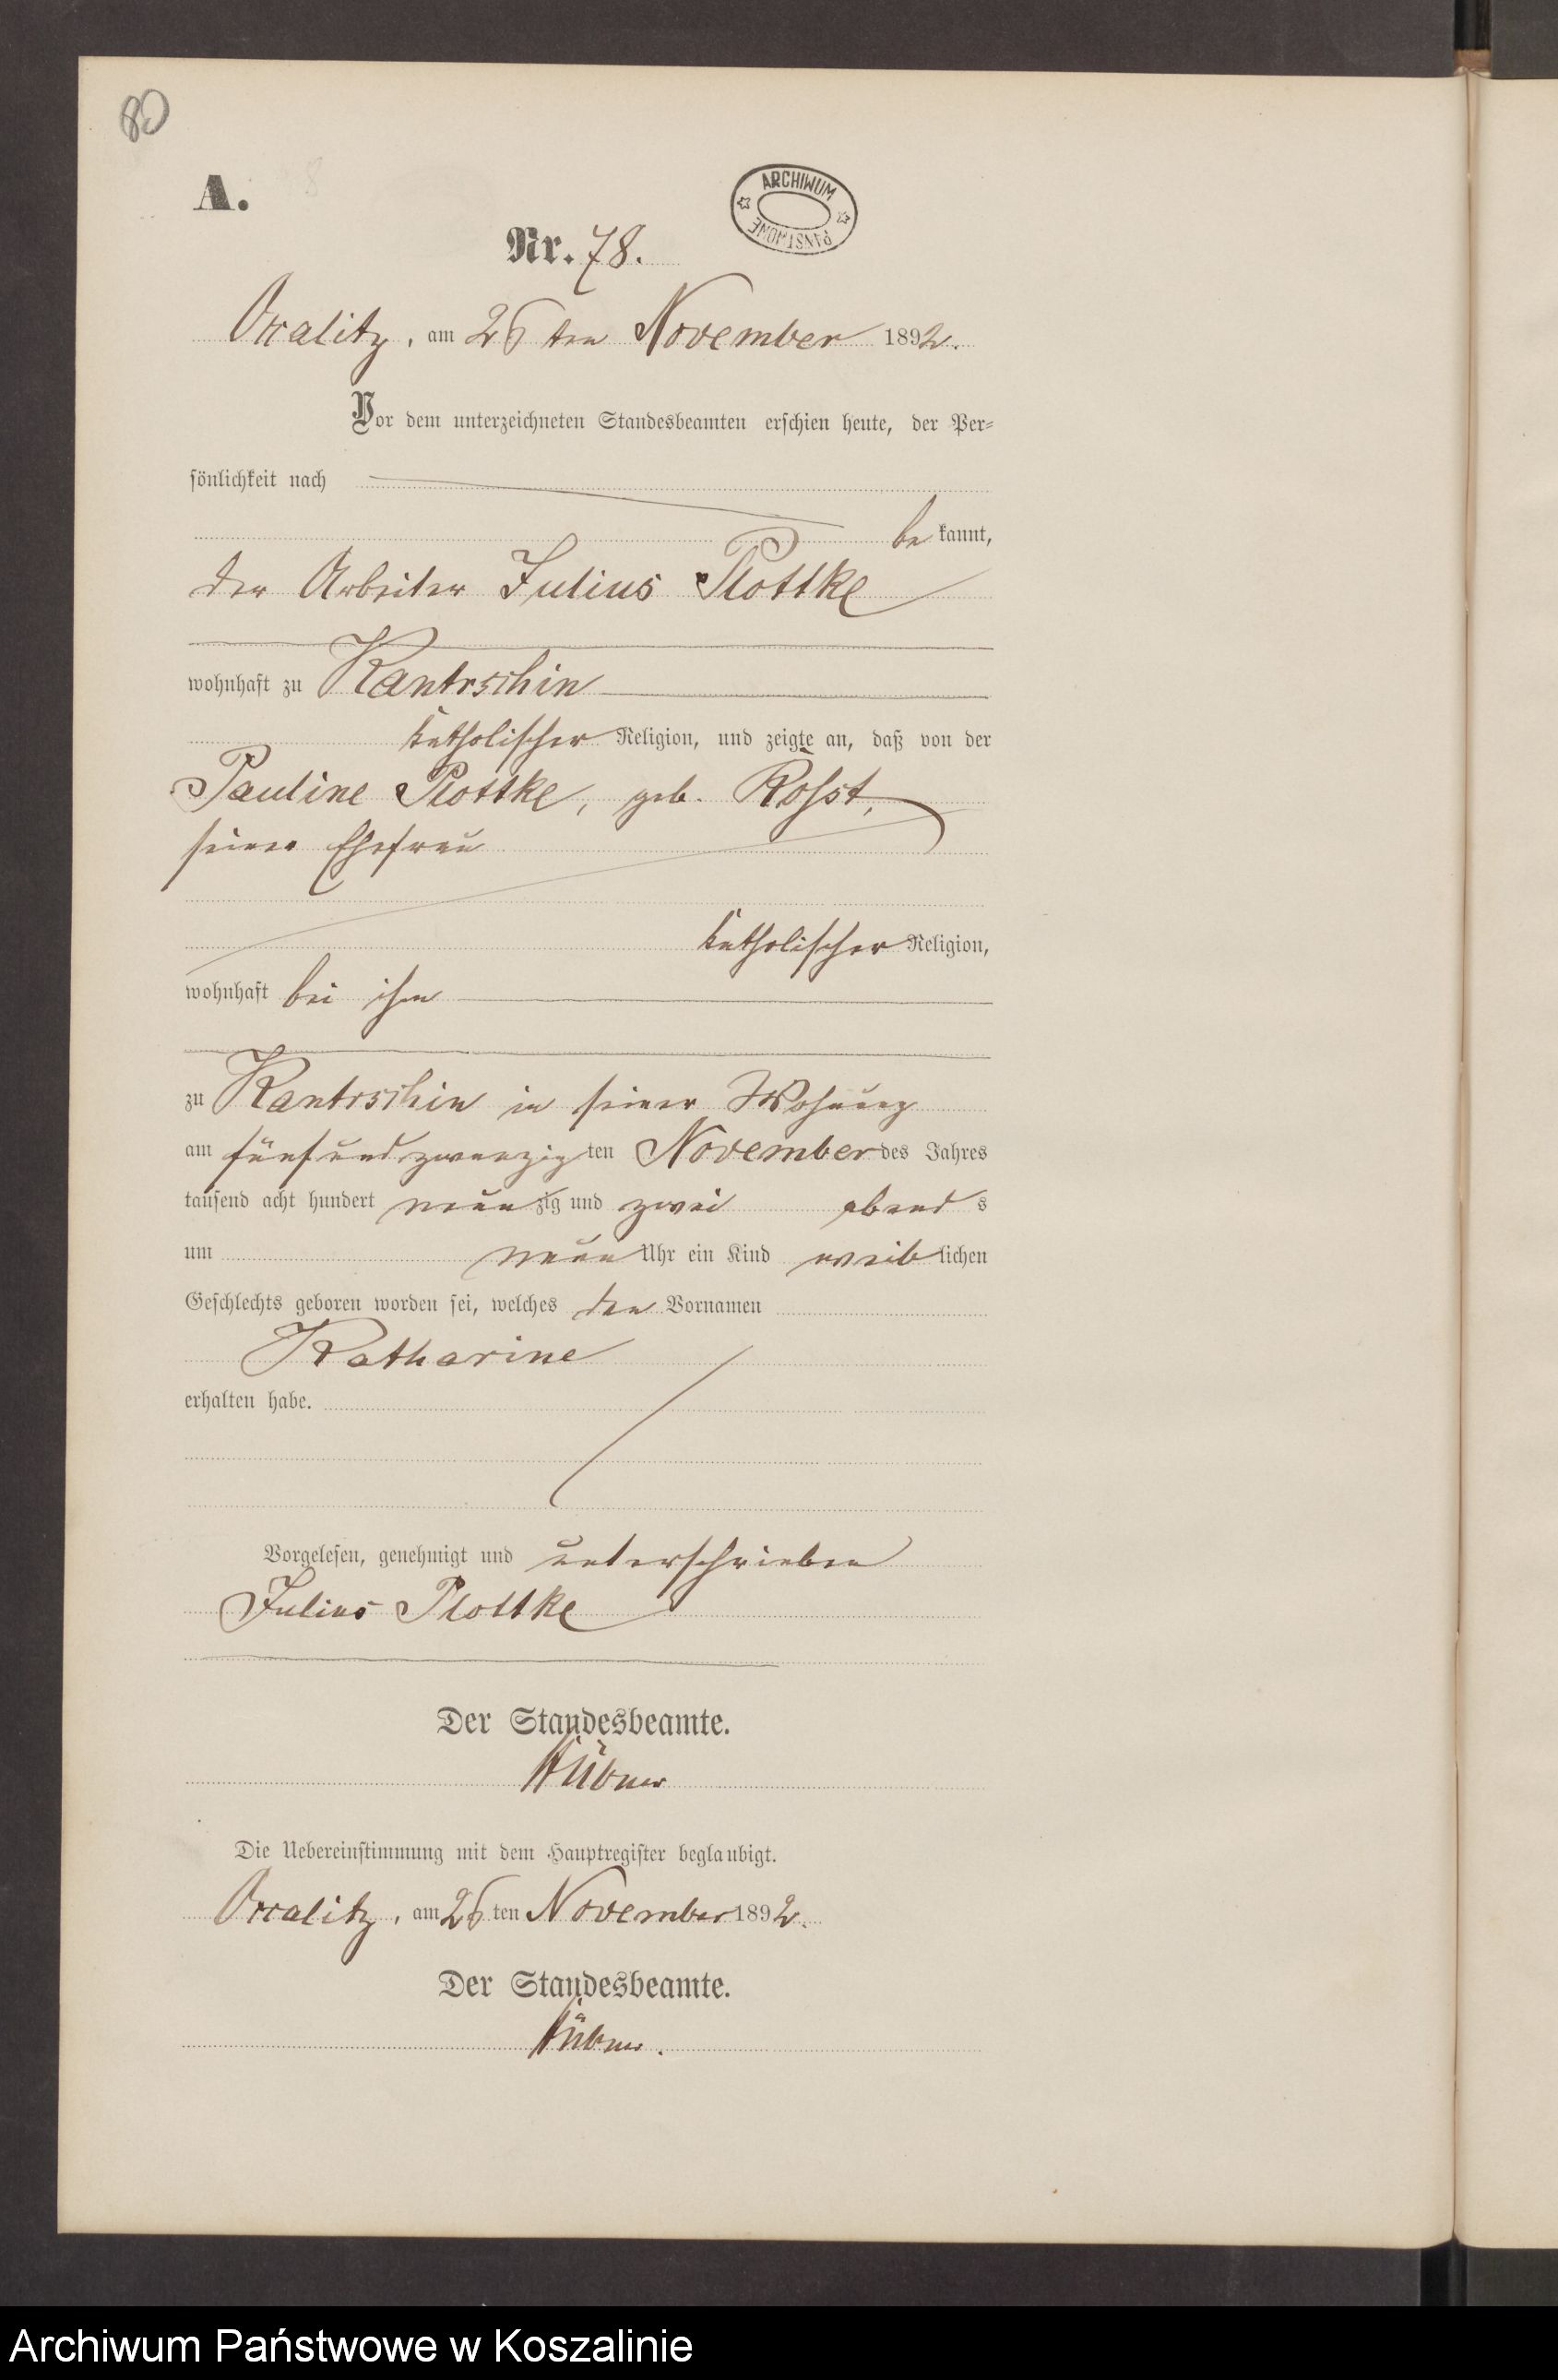 80
A.
ARCHIWUM PAŃSTWOWE
Nr. 78.
Occalitz, am 26 ten November 1892.
Vor dem unterzeichneten Standesbeamten erschien heute, der Per-
sönlichkeit nach
be kannt,
der Arbeiter Julius Plottke
wohnhaft zu Kantrschin
katholischer Religion, und zeigte an, daß von der
Pauline Plottke, geb. Rosst,
seiner Ehefrau
katholischer Religion,
wohnhaft bei ihm
zu Kantrschin in seiner Wohnung
am fünfundzwanzig ten November des Jahres
tausend acht hundert neunzig und zwei abend s
um neun Uhr ein Kind weiblichen
Geschlechts geboren worden sei, welches den Vornamen
Katharine
erhalten habe.
Vorgelesen, genehmigt und unterschrieben
Julius Plottke
Der Standesbeamte.
Hübner
Die Uebereinstimmung mit dem Hauptregister beglaubigt.
Occalitz, am 26 ten November 1892.
Der Standesbeamte.
Hübner.
Archiwum Państwowe w Koszalinie